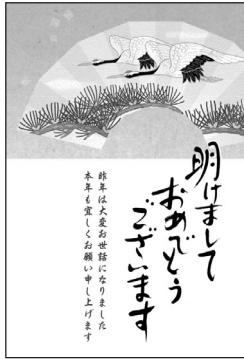 明けまして
おめでとう
ございます
昨年は大変お世話になりました
本年も宜しくお願い申し上げます